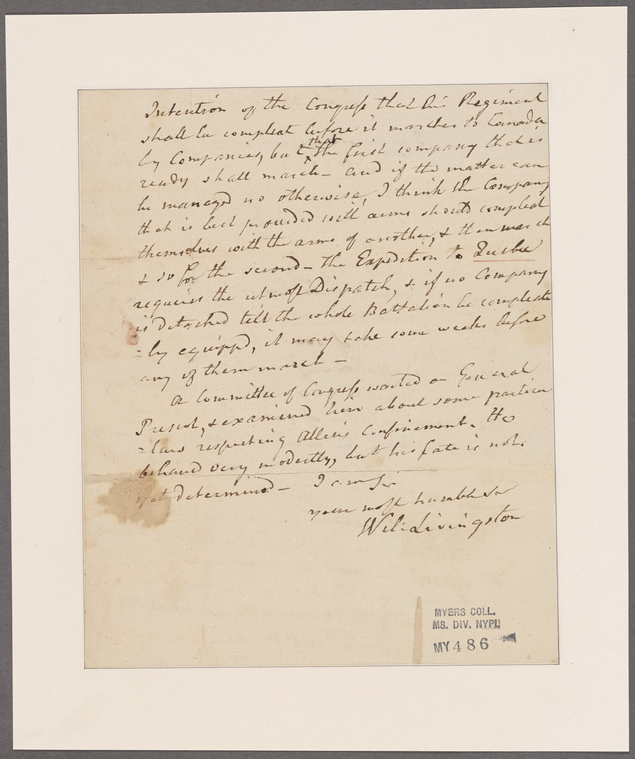 Intention of the Congress that this Regiment
shall be compleat before it marches to Canada
by Companies, but that the first company that is
ready shall march – and if the matter can
be managed no otherwise, I think the Company
that is best provided with arms should compleat
themselves with the arms of another, & then march
& so for the second – The Expedition to Quebec
requires the utmost Dispatch, & if no Company
is detached till the whole Battalion be compleate
=ly equippd, it may take some weeks before
any of them march –
A Committee of Congress waited on General
Prescot, & examined him about some particu
=lars respecting Allen's Confinement. He
behavd very modestly, but his fate is not
yet determind – I am Sir
your most humble Ser
Wil: Livingston
MYERS COLL.
MS. DIV. NYPL
MY 486